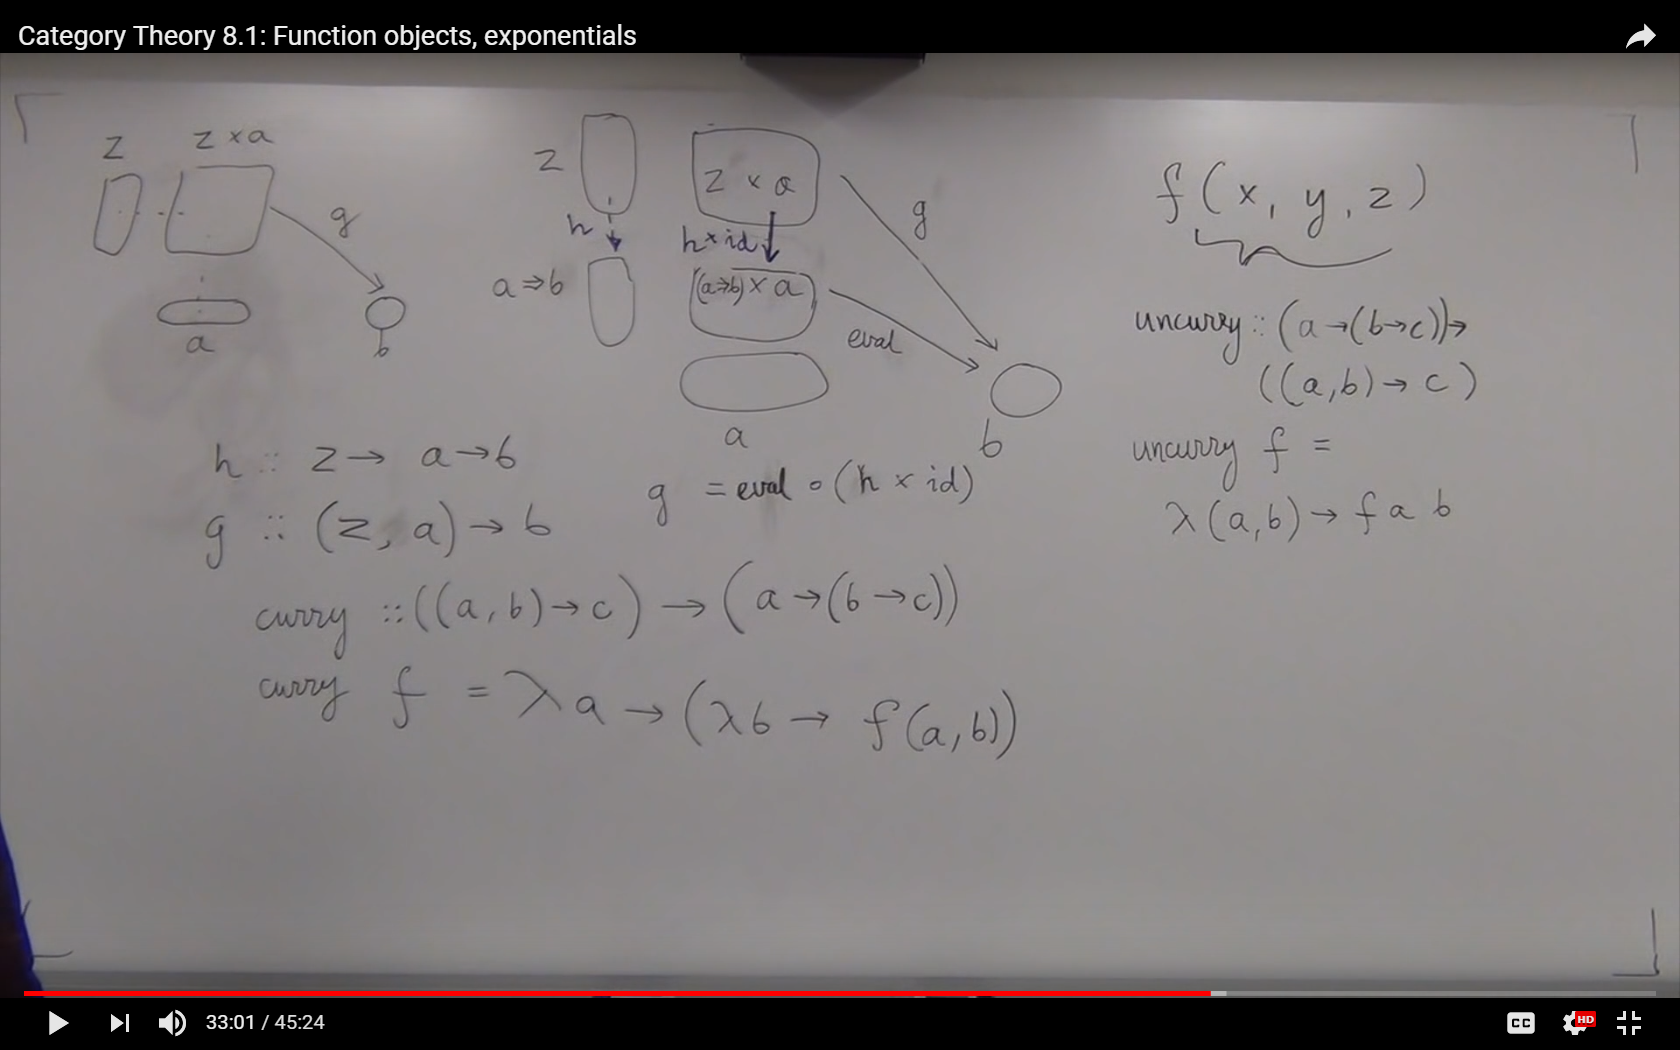 Category Theory 8.1: Function objects, exponentials
z
z × a
g
a
b
z
z × a
h
h × id
g
a ⇒ b
(a⇒b) × a
eval
a
b
h :: z → a → b
g :: (z, a) → b
g = eval ∘ (h × id)
curry :: ((a, b) → c) → (a → (b → c))
curry f = λ a → (λ b → f (a, b))
f (x, y, z)
uncurry :: (a → (b → c)) →
((a, b) → c)
uncurry f =
λ (a, b) → f a b
33:01 / 45:24
CC
HD